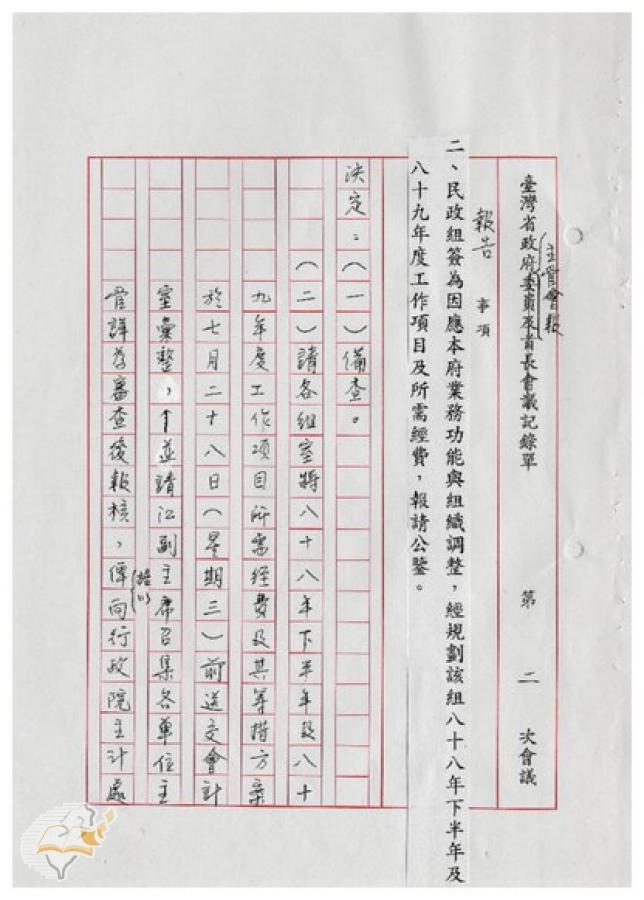 臺灣省政府委員及首長會議記錄單 第二次會議
主管會報
報告事項
二、民政組簽為因應本府業務功能與組織調整，經規劃該組八十八年下半年及
八十九年度工作項目及所需經費，報請公鑒。
決定：（一）備查。
（二）請各組室將八十八年下半年及八十
九年度工作項目所需經費及其籌措方案
於七月二十八日（星期三）前送交會計
室彙整，並請江副主席召集各單位主
管詳為審查後報核，俾向行政院主計處